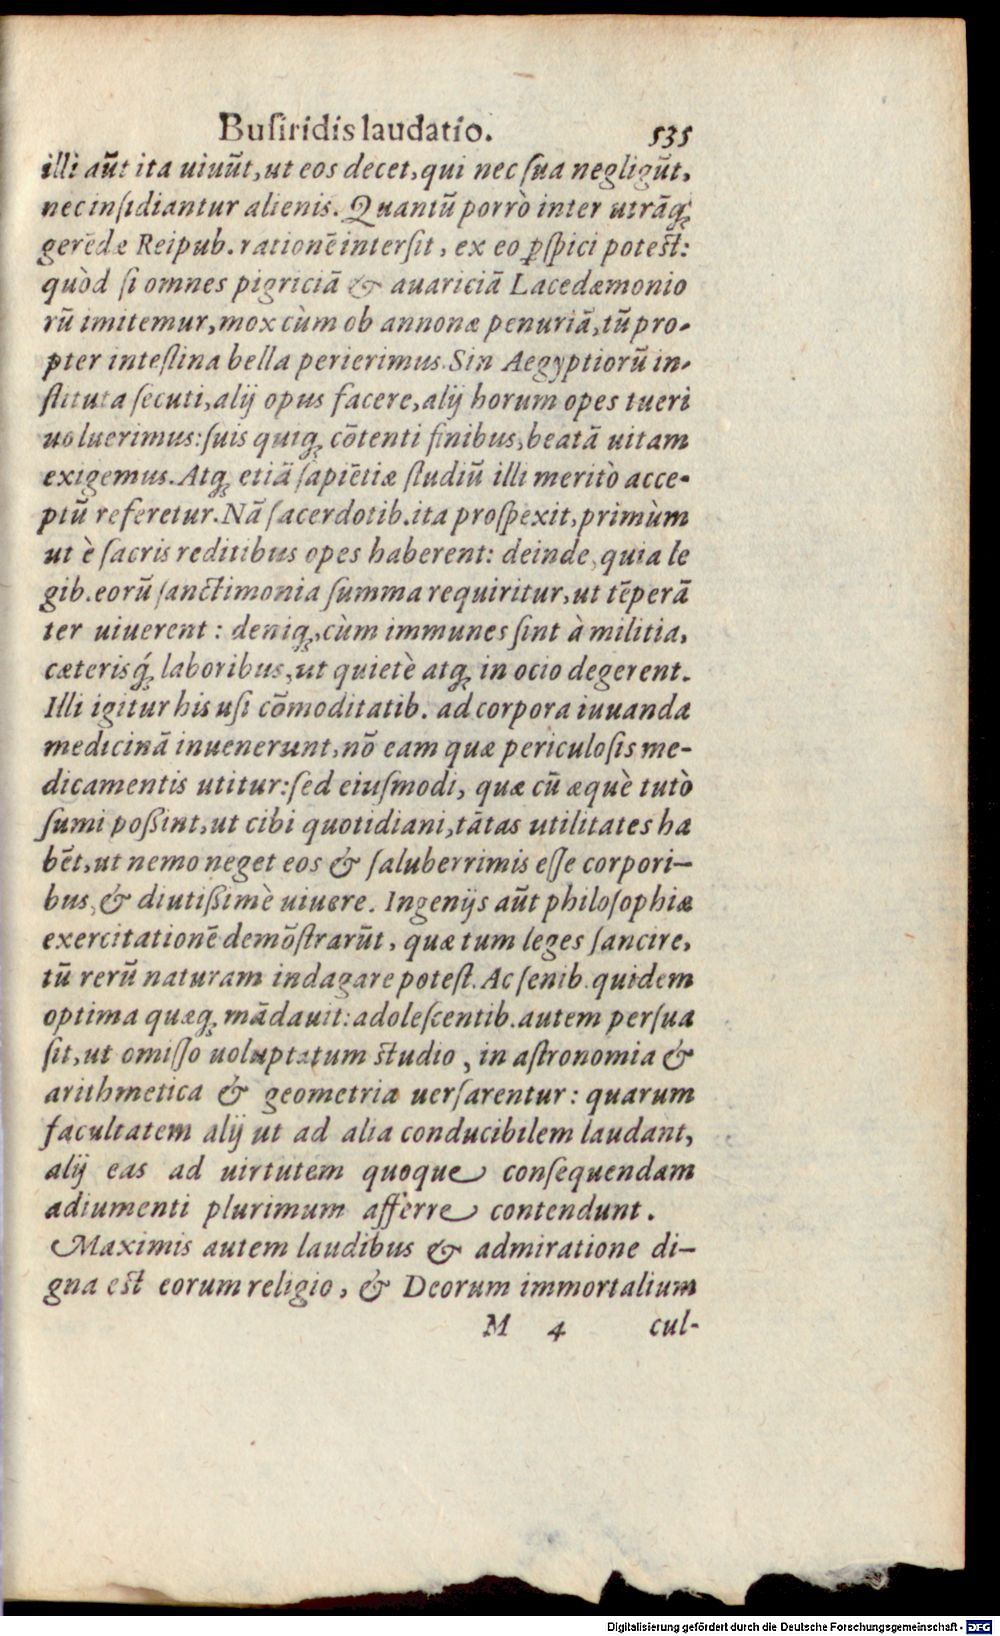 Busiridis laudatio. 535
illi aūt ita uiuūt, ut eos decet, qui nec sua negligūt,
nec insidiantur alienis. Quantū porrò inter utrāq́ꝫ
gerēdæ Reipub. rationē intersit, ex eo ꝑspici potest:
quòd si omnes pigriciā & auariciā Lacedæmonio
rū imitemur, mox cùm ob annonæ penuriā, tū pro-
pter intestina bella perierimus. Sin Aegyptiorū in-
stituta secuti, alij opus facere, alij horum opes tueri
uoluerimus: suis quiqꝫ cōtenti finibus, beatā uitam
exigemus. Atqꝫ etiā sapiētiæ studiū illi meritò acce-
ptū referetur. Nā sacerdotib. ita prospexit, primùm
ut è sacris reditibus opes haberent: deinde, quia le
gib. eorū sanctimonia summa requiritur, ut tēperā
ter uiuerent: deniqꝫ, cùm immunes sint à militia,
cæterisq́ꝫ laboribus, ut quietè atqꝫ in ocio degerent.
Illi igitur his usi cōmoditatib. ad corpora iuuanda
medicinā inuenerunt, nō eam quæ periculosis me-
dicamentis utitur: sed eiusmodi, quæ cū æquè tutò
sumi poßint, ut cibi quotidiani, tātas utilitates ha
bēt, ut nemo neget eos & saluberrimis esse corpori-
bus, & diutißimè uiuere. Ingenijs aūt philosophiæ
exercitationē demōstrarūt, quæ tum leges sancire,
tū rerū naturam indagare potest. Ac senib. quidem
optima quæqꝫ mādauit: adolescentib. autem persua
sit, ut omisso uoluptatum studio, in astronomia &
arithmetica & geometria uersarentur: quarum
facultatem alij ut ad alia conducibilem laudant,
alij eas ad uirtutem quoque consequendam
adiumenti plurimum afferre contendunt.
Maximis autem laudibus & admiratione di-
gna est eorum religio, & Deorum immortalium
M 4 cul-
Digitalisierung gefördert durch die Deutsche Forschungsgemeinschaft - DFG